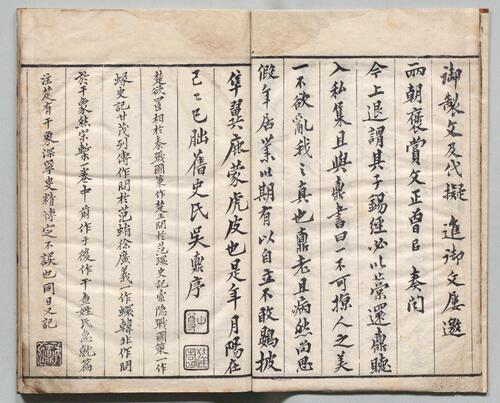 御製文及代擬進御文屢邀
兩朝褒賞文正曽已奏聞
今上退謂其子錫經必以藁還鼎聽
入私集且與鼎書曰一不可掠人之美
一不欲亂我之真也鼎老且病然尚思
假年居業以期有以自立不敢鷃披
隼翼鹿蒙虎皮也是年月陽在
己己巳朏舊史氏吳鼒序
楚欲置相於秦戰國策作楚王問於范環史記索隱戰國策一作
蝝史記甘茂列傳作問於范蜎徐廣義一作蠉韓非作問
於干象然宋槧卷中前作于後作干查姓氏急就篇
注是有干象深寧史精博定不誤也同日又記